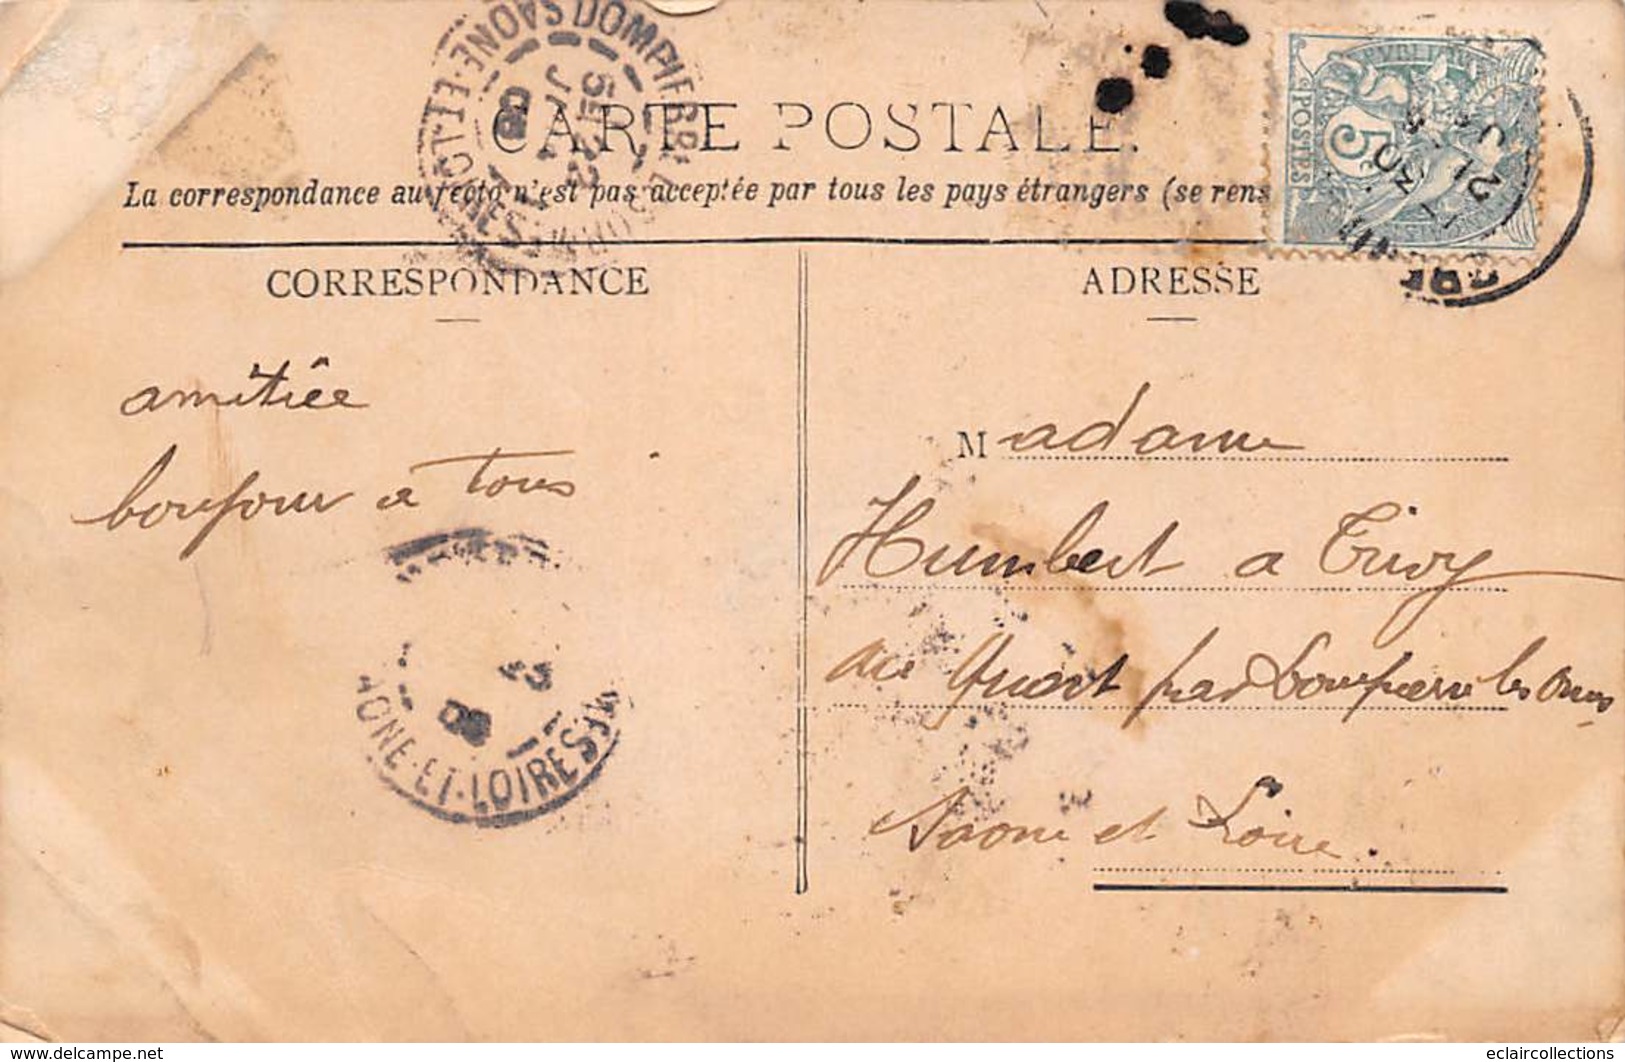 CARTE POSTALE.
La correspondance au recto n'est pas acceptée par tous les pays étrangers (se rens
CORRESPONDANCE
ADRESSE
amitiée
bonjour a tous
Madame
Humbert a Trivy
au Quart par Dompierre les Ormes
Saone et Loire.
5
POSTES
DOMPIERRE
SAONE-ET-LOIRE
08
AONE-ET-LOIRE
08
www.delcampe.net
eclaircollections